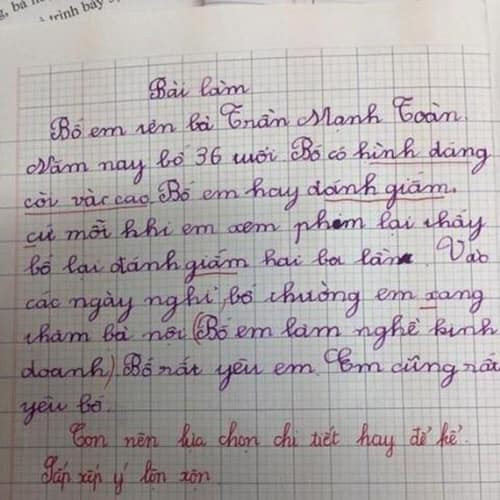 g, bà n
trình bày s
Bài làm
Bố em tên là Trần Mạnh Toàn.
Năm nay bố 36 tuổi Bố có hình dáng
còi và cao. Bố em hay dánh giắm.
cứ mỗi khi em xem phim lại thấy
bố lại đánh giắm hai ba lần. Vào
các ngày nghỉ, bố thường em xang
thăm bà nội (Bố em làm nghề kinh
doanh). Bố rất yêu em. Em cũng rất
yêu bố.
Con nên lựa chọn chi tiết hay để kể.
Sắp xếp ý lộn xộn